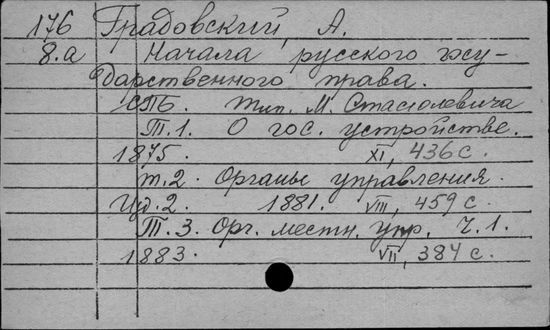 176 Градовский, А.
8.а Начала русского госу-
дарственного права.
СПБ. Тип. М. Стасюлевича
Т. 1. О гос. устройстве.
1875. XI, 436 с.
т. 2. Органы управления.
Изд. 2. 1881. VIII, 459 с.
Т. 3. Орг. местн. упр. Ч. 1.
1883. VII, 384 с.